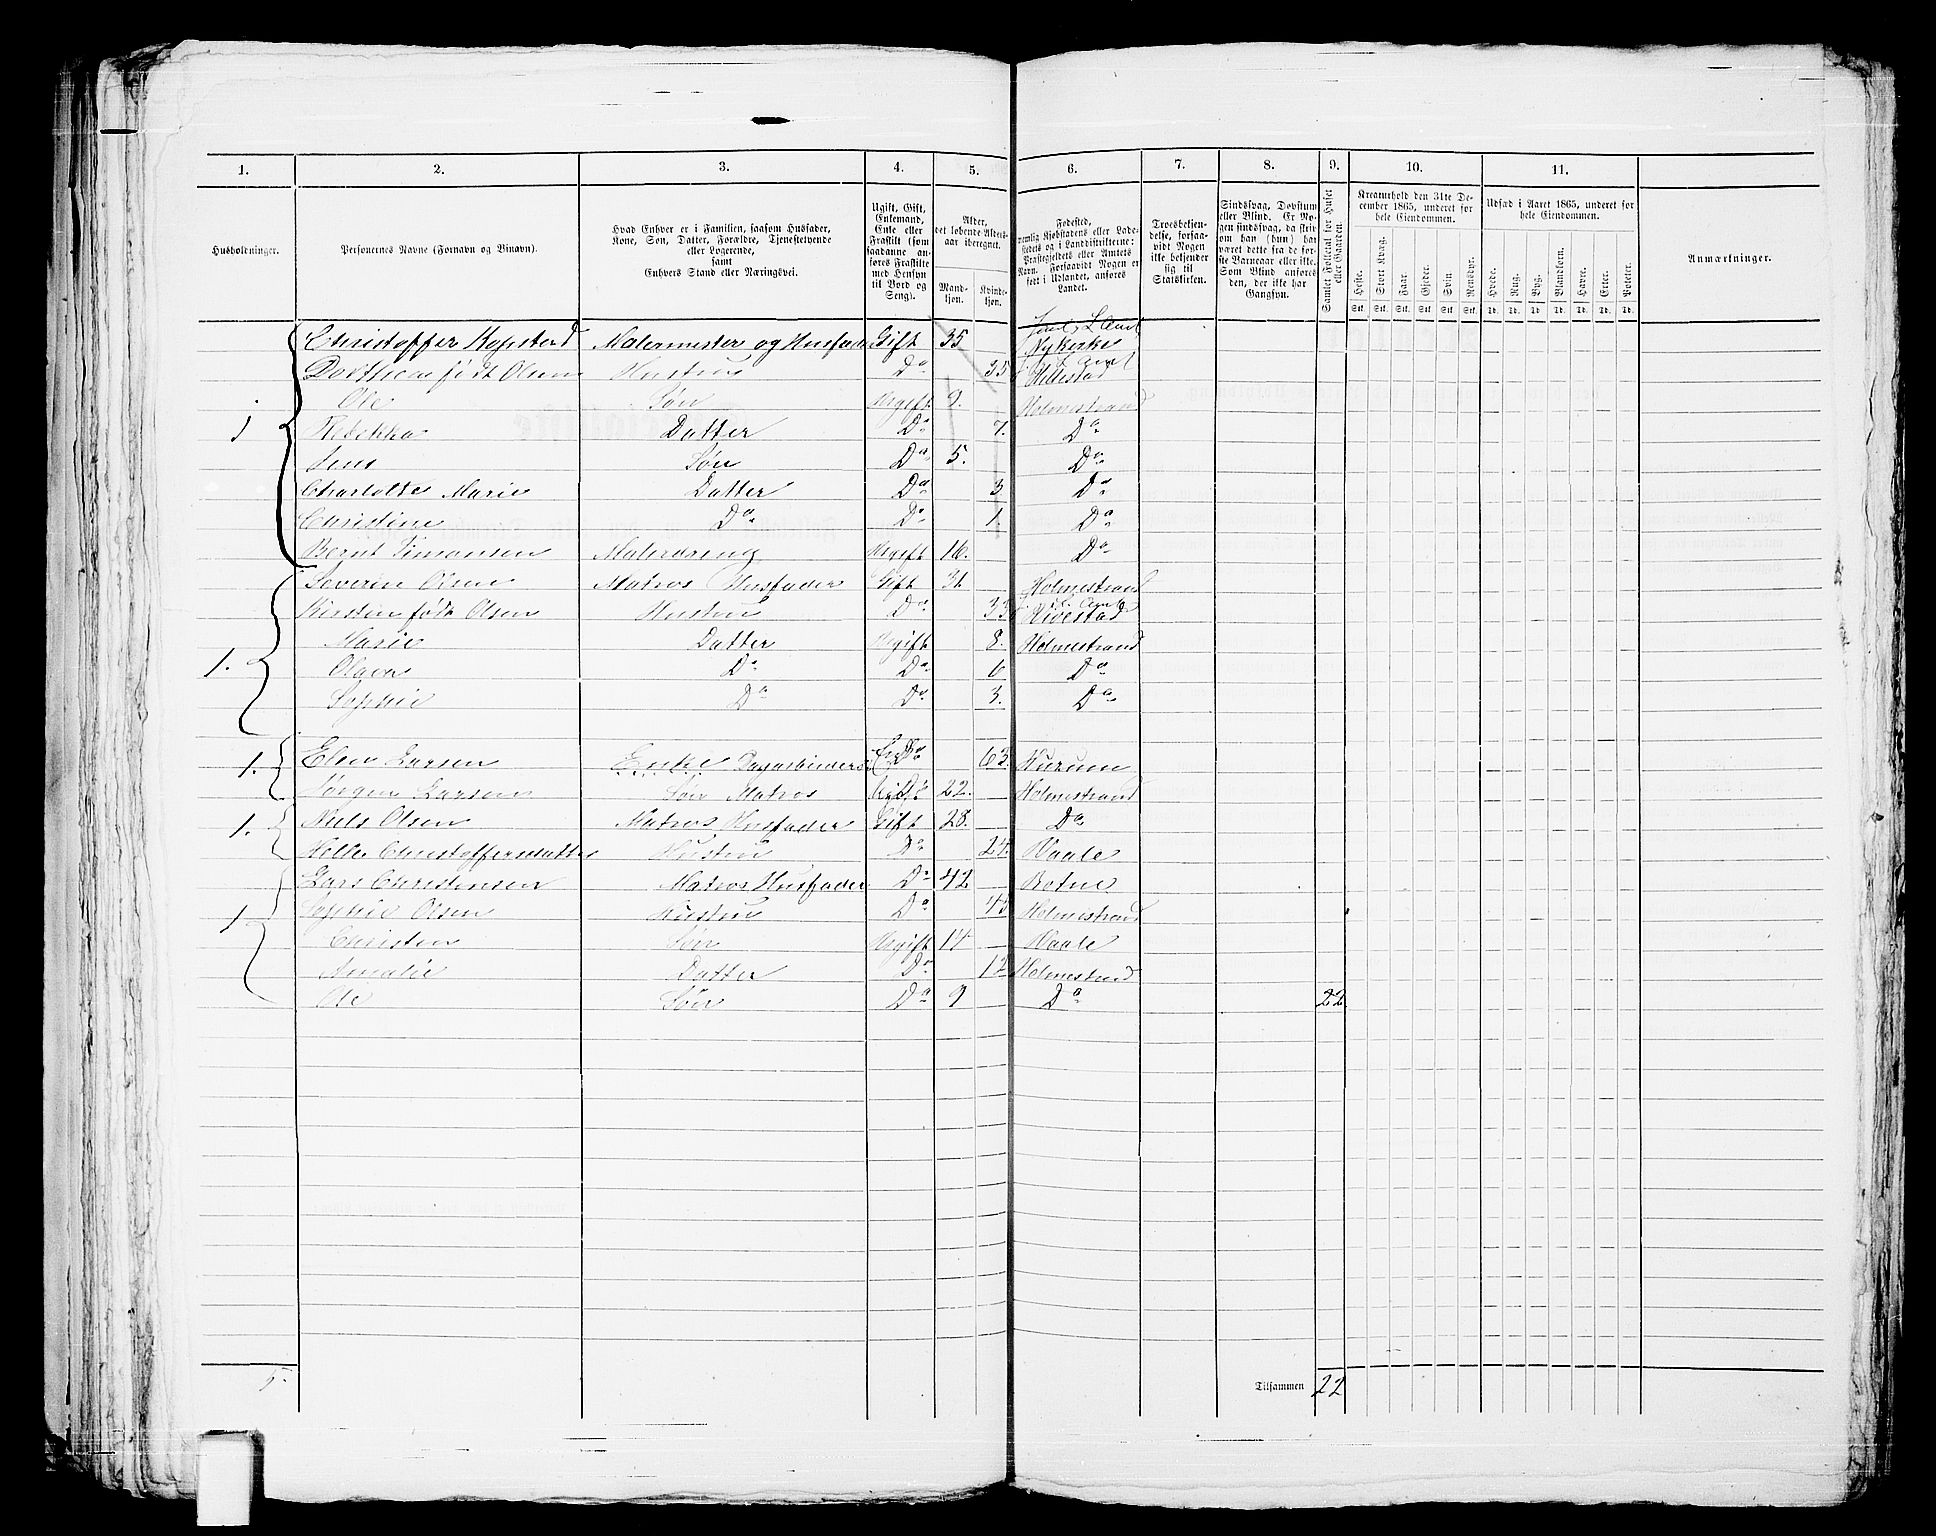 1. 2. 3. 4. 5. 6. 7. 8. 9. 10. 11.
Husholdninger.
Personernes Navne (Fornavn og Binavn).
Hvad Enhver er i Familien, saasom Husfader, Kone, Søn, Datter, Forældre, Tjenestetyende eller Logerende, samt Enhvers Stand eller Næringsvei.
Ugift, Gift, Enkemand, Enke eller Fraskilt (som saadanne anføres Fraskilte med Hensyn til Bord og Seng).
Alder, det løbende Alders-aar iberegnet.
Mandkjøn. Kvindekjøn.
Fødested, nemlig Kjøbstadens eller Ladestedets og i Landdistrikterne: Præstegjeldets eller Amtets Navn. Forsaavidt Nogen er født i Udlandet, anføres Landet.
Troesbekjendelse, forsaavidt Nogen ikke bekjender sig til Statskirken.
Sindssvag, Døvstum eller Blind. Er Nogen sindssvag, da skrives om han (hun) har været dette fra de første Barneaar eller ikke. Som Blind anføres den, der ikke har Gangsyn.
Samlet Folketal for Huset eller Gaarden.
Kreaturhold den 31te December 1865, underet for hele Eiendommen.
Heste. Stort Kvæg. Faar. Gjeder. Svin. Rensdyr.
Stk. Stk. Stk. Stk. Stk. Stk.
Udsæd i Aaret 1865, underet for hele Eiendommen.
Hvede. Rug. Byg. Blandkorn. Havre. Erter. Poteter.
Td. Td. Td. Td. Td. Td. Td.
Anmærkninger.
Christoffer Kopstad Malermester og Husfader Gift 35 Jarls L Amt Nykirke
Dorthea født Olsen Hustru Do 35 L Amt Hillestad
Ole Søn Ugift 9. Holmestrand
1 Rebekka Datter Do 7. Do
Jens Søn Do 5. Do
Charlotte Marie Datter Do 3 Do
Christine Do Do 1. Do
Bernt Simonsen Malerdreng Ugift 16. Do
Severin Olsen Matros Husfader Gift 31 Holmestrand
Kirstin født Olsen Hustru Do 33 Amt
Marie Datter Ugift 8. Holmestrand
1. Olava Do Do 6 Do
Sophie Do Do 3. Do
1. Elen Larsen Enke Enke 63.
Jørgen Larsen Søn Matros Ugift 22. Holmestrand
1. Niels Olsen Matros Husfader Gift 28. Do
Helle Christoffersdatter Hustru Do 24. Vaale
Lars Christensen Matros Husfader Do 42 Botne
1 Sophie Olsen Hustru Do 43 Holmestrand
Christen Søn Ugift 14 Vaale
Amalie Datter Do 12 Holmestrand
Ole Søn Do 9 Do 22.
5. Tilsammen 22